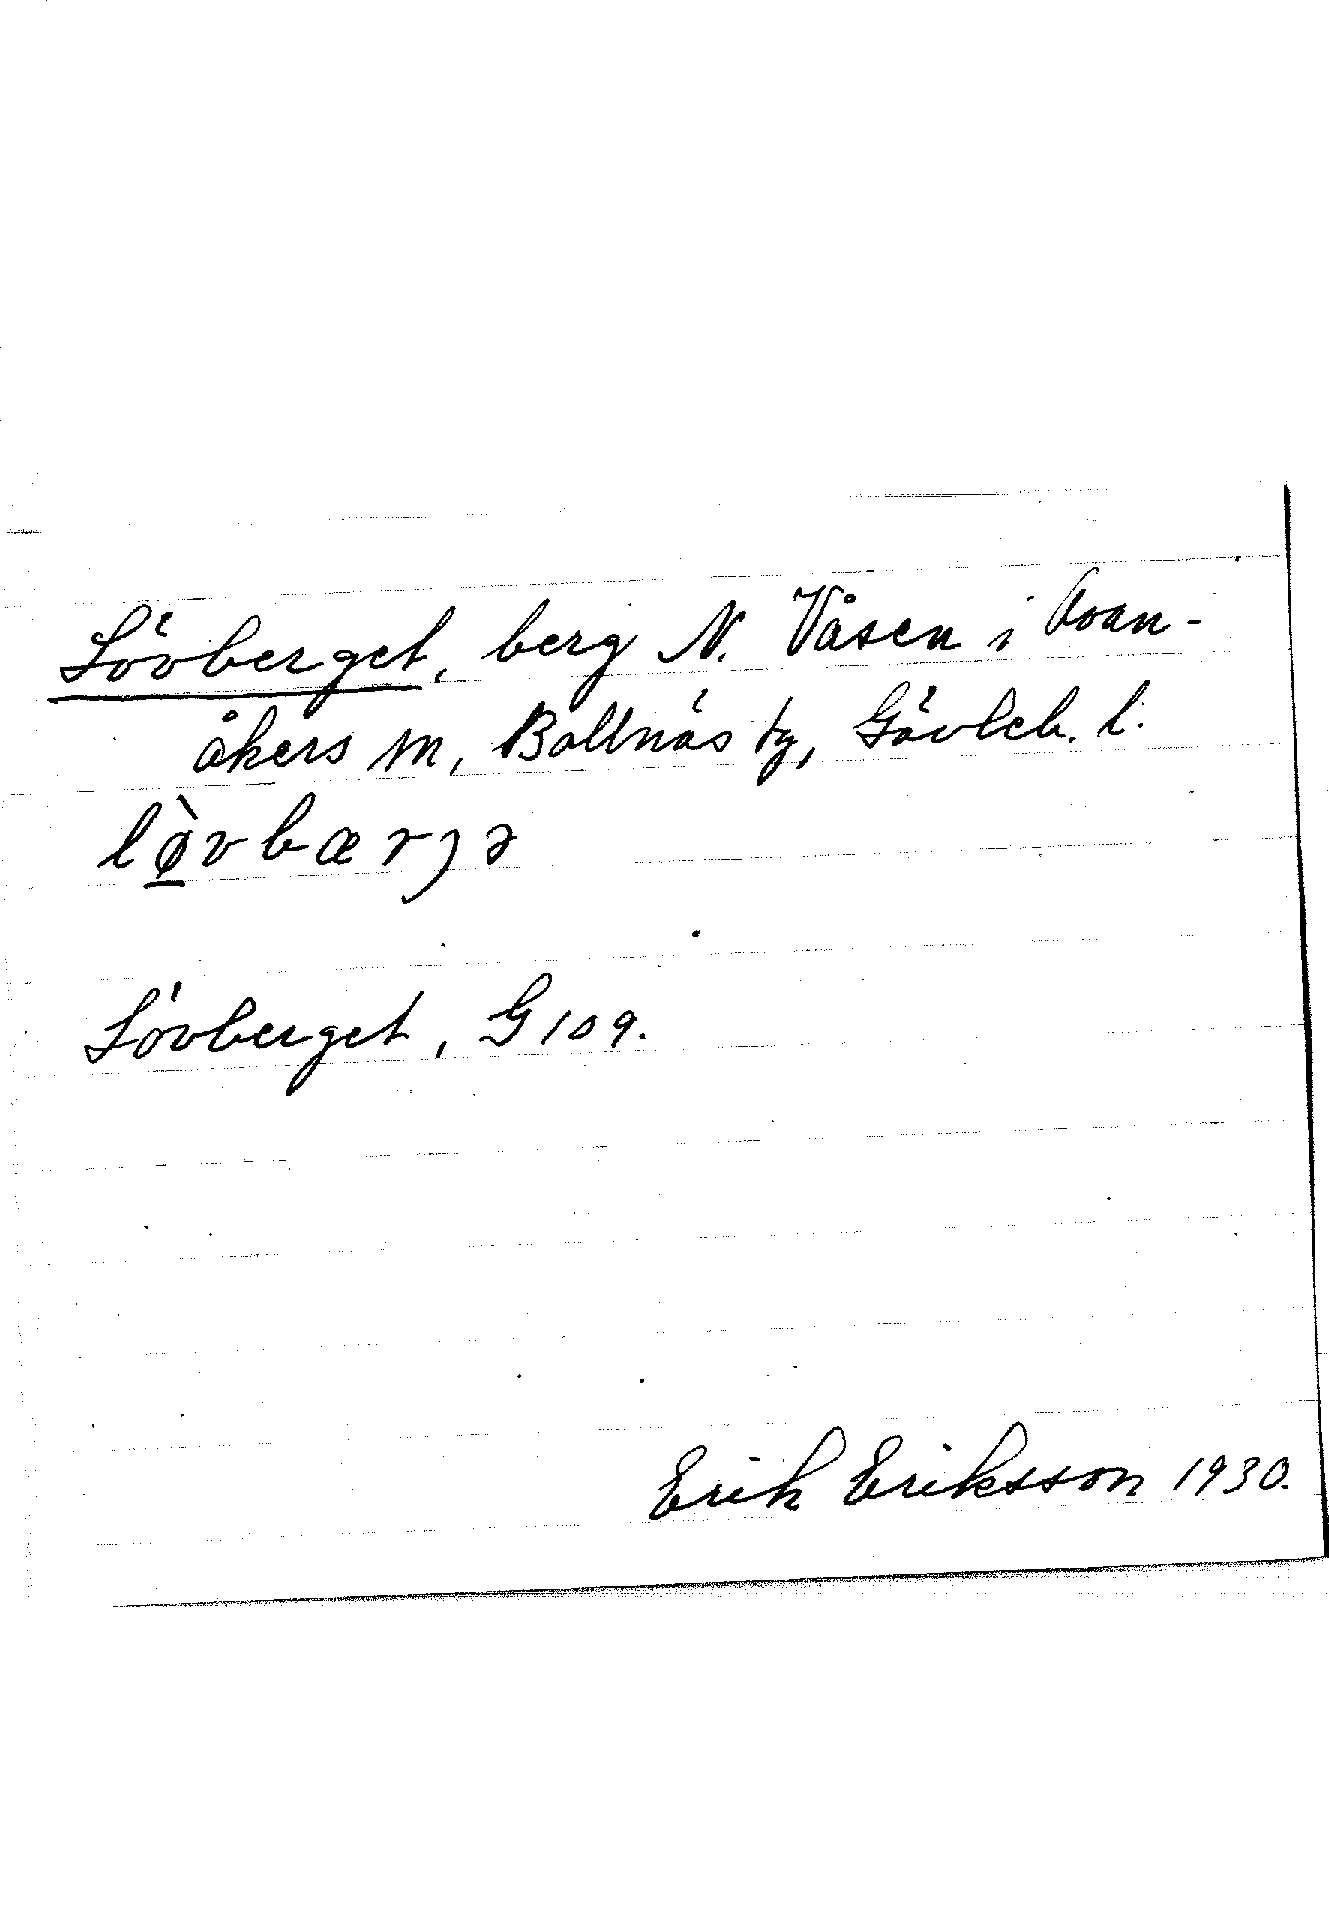 Lövberget, berg N. Våsen i Ovan-
åkers sn, Bollnäs tg, Gävleb. l.
lø̱̀vbærjə
Lövberget, G 109.
Erik Eriksson 1930.